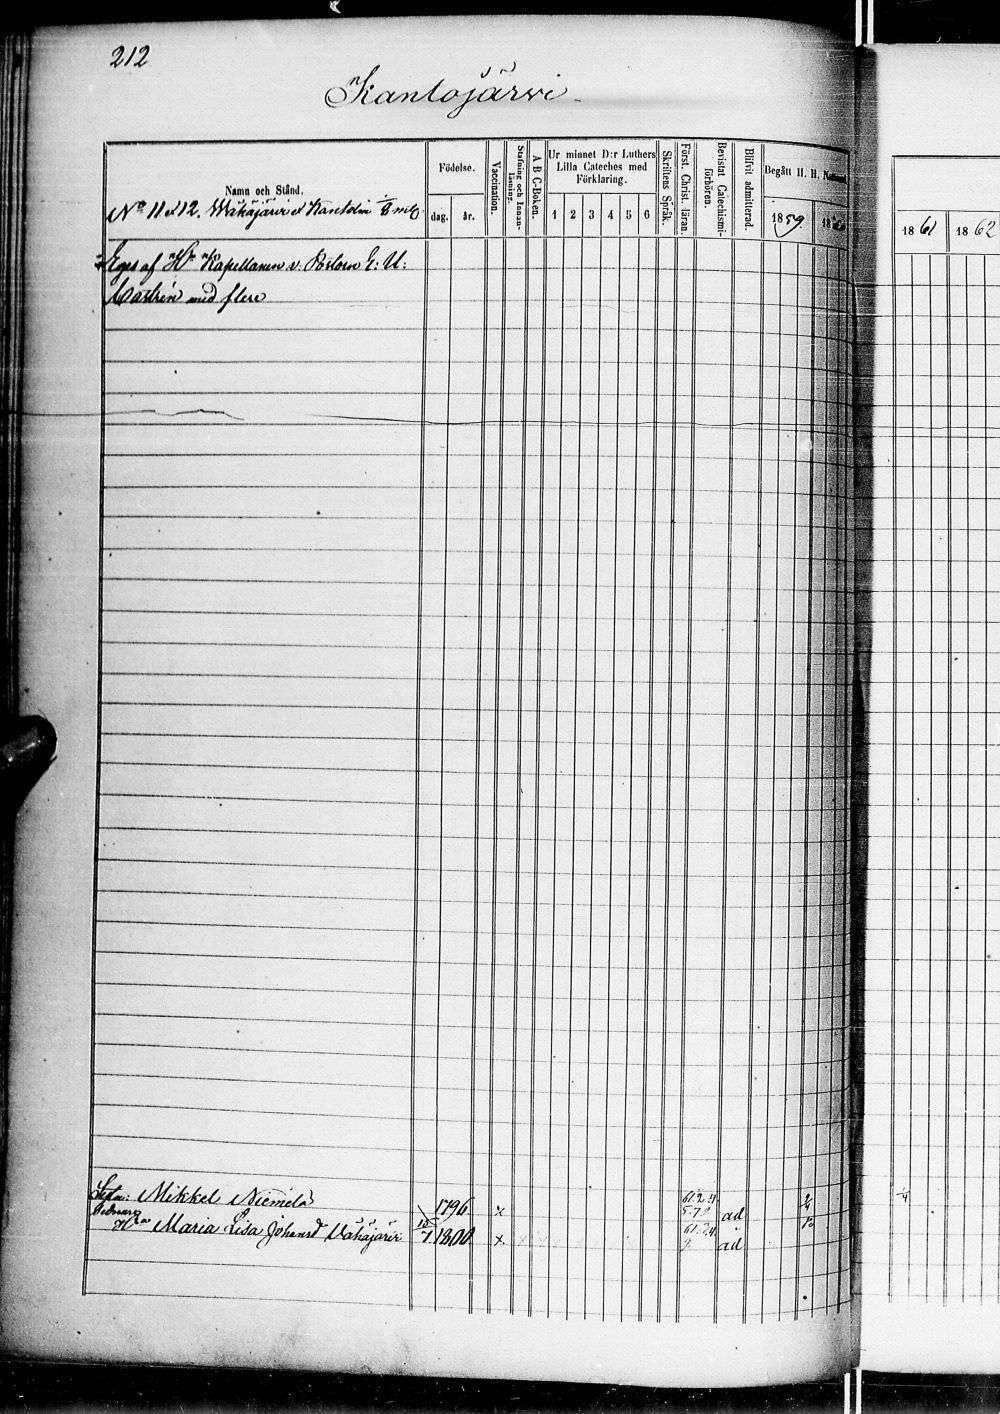 212
Kantojärwi
Namn och Stånd.
Födelse.
dag. år.
Vaccination.
Stafning och Innanläsning.
A B C-Boken.
Ur minnet D:r Luthers Lilla Cateches med Förklaring.
1 2 3 4 5 6
Skriftens Språk.
Först. Christ. läran.
Bevistat Catechismiförhören.
Blifvit admitterad.
Begått H. H. Nattvard
1859
1861 1862
No 11 et 12, Wähäjärwi et Kantola
Eges af Kapellanen v. Pastorn E: U:
Castrén med flere
Mikkel Niemelä 1796 x ad
Hu Maria Lisa Johansd Vähäjärvi 1800 x ad